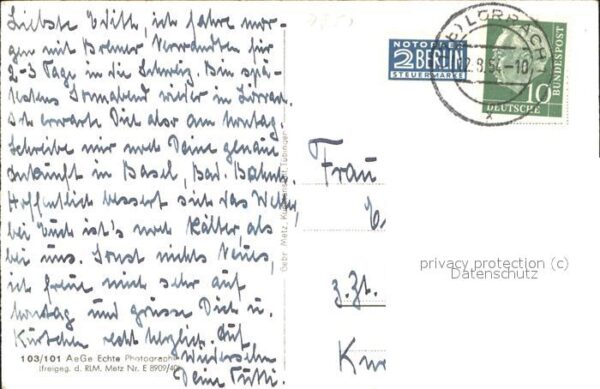 Liebste Edith, ich fahre mor-
gen mit Bremer Verwandten für
2-3 Tage in die Schweiz. Bin spä-
testens Sonnabend wieder in Lörrach.
Ich erwarte Dich also am Montag.
Schreibe mir noch Deine genaue
Ankunft in Basel, Bad. Bahnh.
Hoffentlich bessert sich das Wetter,
bei Euch ist's noch kälter, als
bei uns. Sonst nichts Neues,
ich freue mich sehr auf
Montag und grüsse Dich u.
Kurtchen recht herzlich. Auf
Wiedersehn
Deine
103/101 AeGe Echte Photographie
(freigeg. d. RLM. Metz Nr. E 8909/40)
Gebr. Metz, Tübingen
NOTOPFER
2 BERLIN
STEUERMARKE
LÖRRACH
2.8.54-10
DEUTSCHE
BUNDESPOST
10
Frau
z.Zt.
privacy protection (c)
Datenschutz